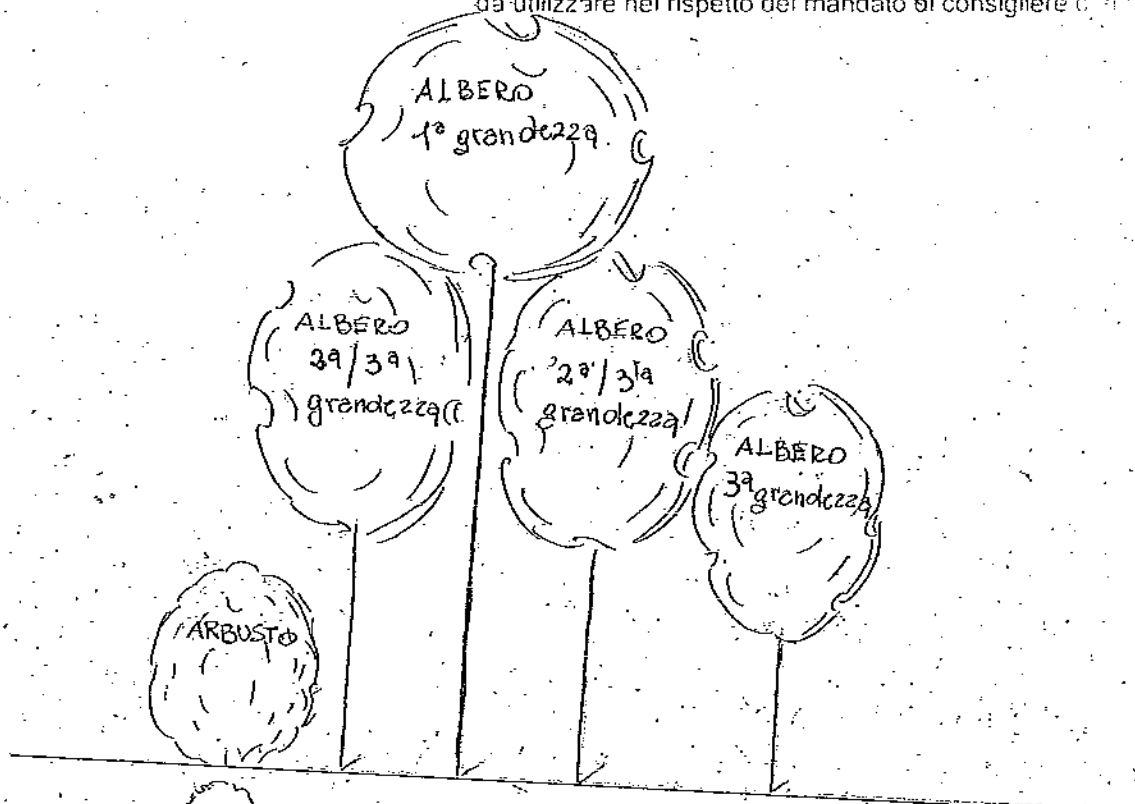 da utilizzare nel rispetto del mandato di consigliere
ALBERO
1ª grandezza
ALBERO
2ª/3ª
grandezza
ALBERO
2ª/3ª
grandezza
ALBERO
3ª grandezza
ARBUSTO